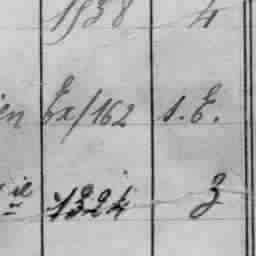 1938 4
en Ex/162 1.E.
ie 1324 3